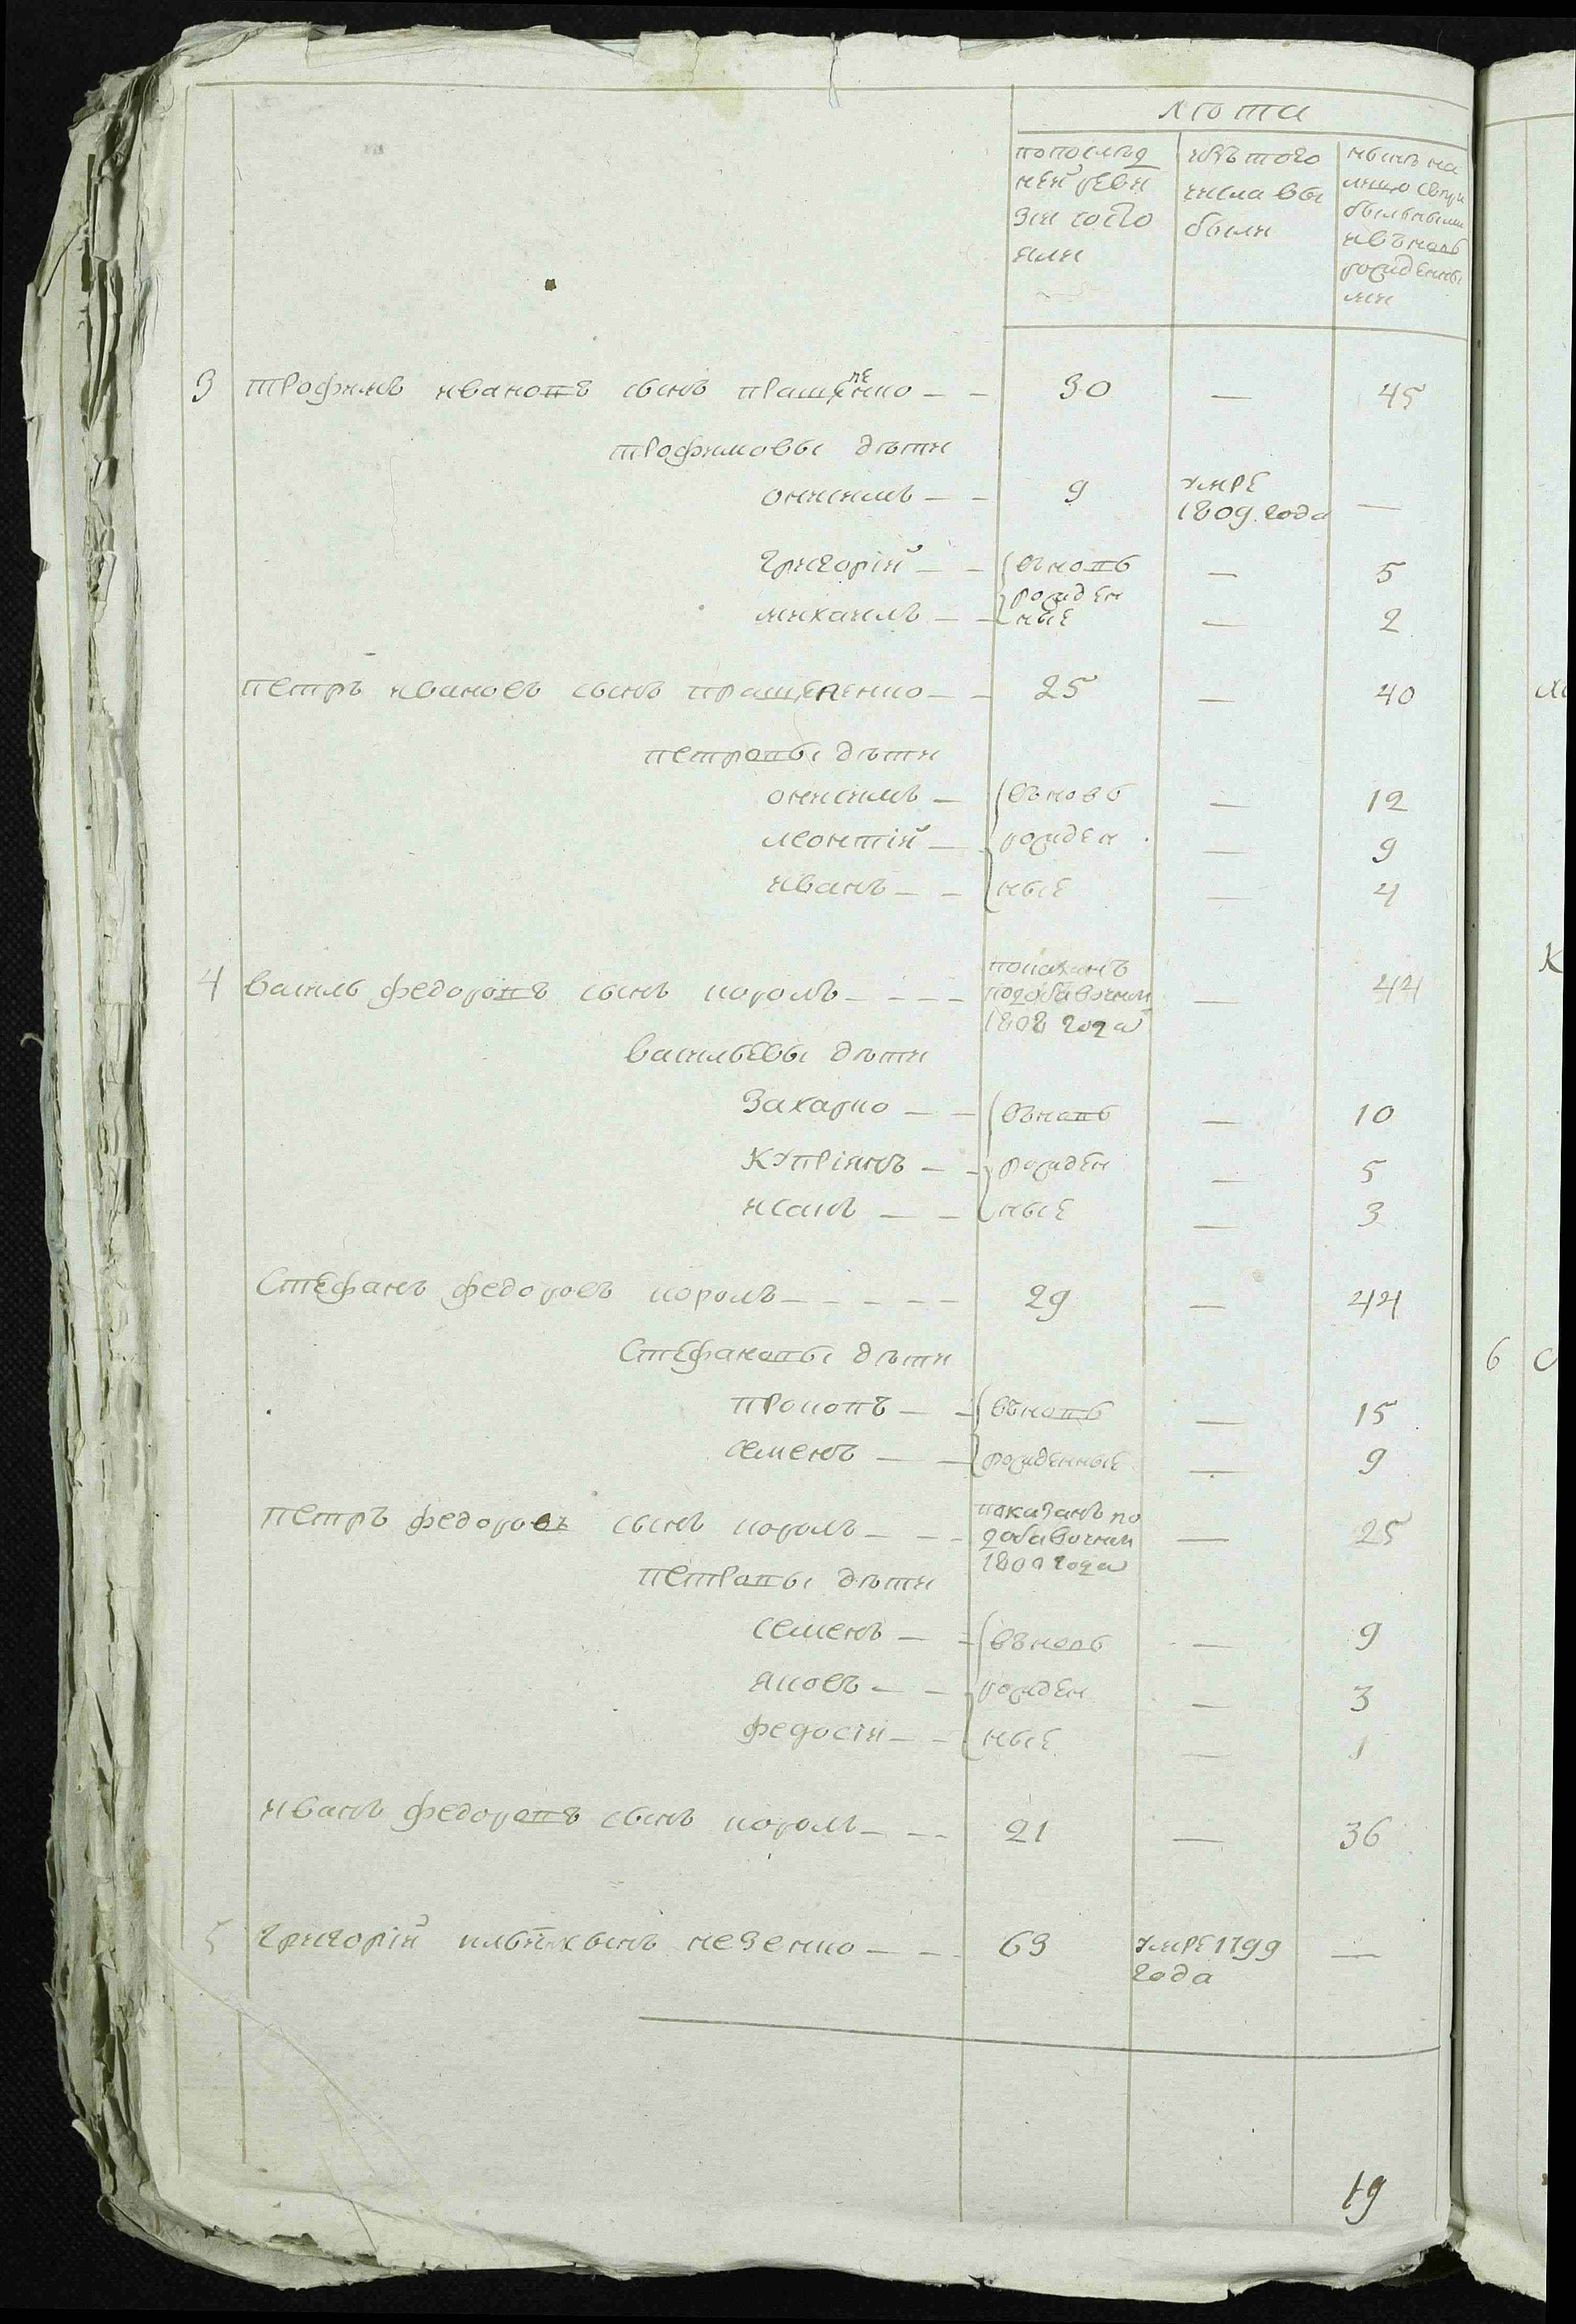 лѣта
попослѣд
ней реви
зіи состо
яли
изъ того
числа вы
были
нынѣ на
лицо сопри
былыми
ивъновь
рожденны
ми
3 трофимъ ивановъ сынъ пращеленко — — 30 — 45
трофимовы дѣти
онисимъ — — 9 умре 1809. года —
григорій — — въновь рожден — 5
михаилъ — — ные — 2
петръ ивановъ сынъ пращеленко — — 25 — 40
петровы дѣти
онисимъ — въново — 12
леонтій — — рожден — 9
иванъ — — ные — 4
4 василь федоровъ сынъ король — — — — показанъ подобавочной 1808 года — 44
васильевы дѣти
Захарко — — въновь — 10
Купріянъ — — рожден — 5
исакъ — — ные — 3
Стефанъ федоровъ король — — — — — 29 — 44
Стефановы дѣти
прокопъ — — въновь — 15
семенъ — — рожденные — 9
петръ федоровъ сынъ король — — — показанъ по добавочной 180 года — 25
петровы дѣти
семенъ — — въновь — 9
яковъ — — рожден — 3
федосій — — ные — 1
иванъ федоровъ сынъ король — — — 21 — 36
5 григорій сынъ незенко — — 69 умре 1799 года —
19